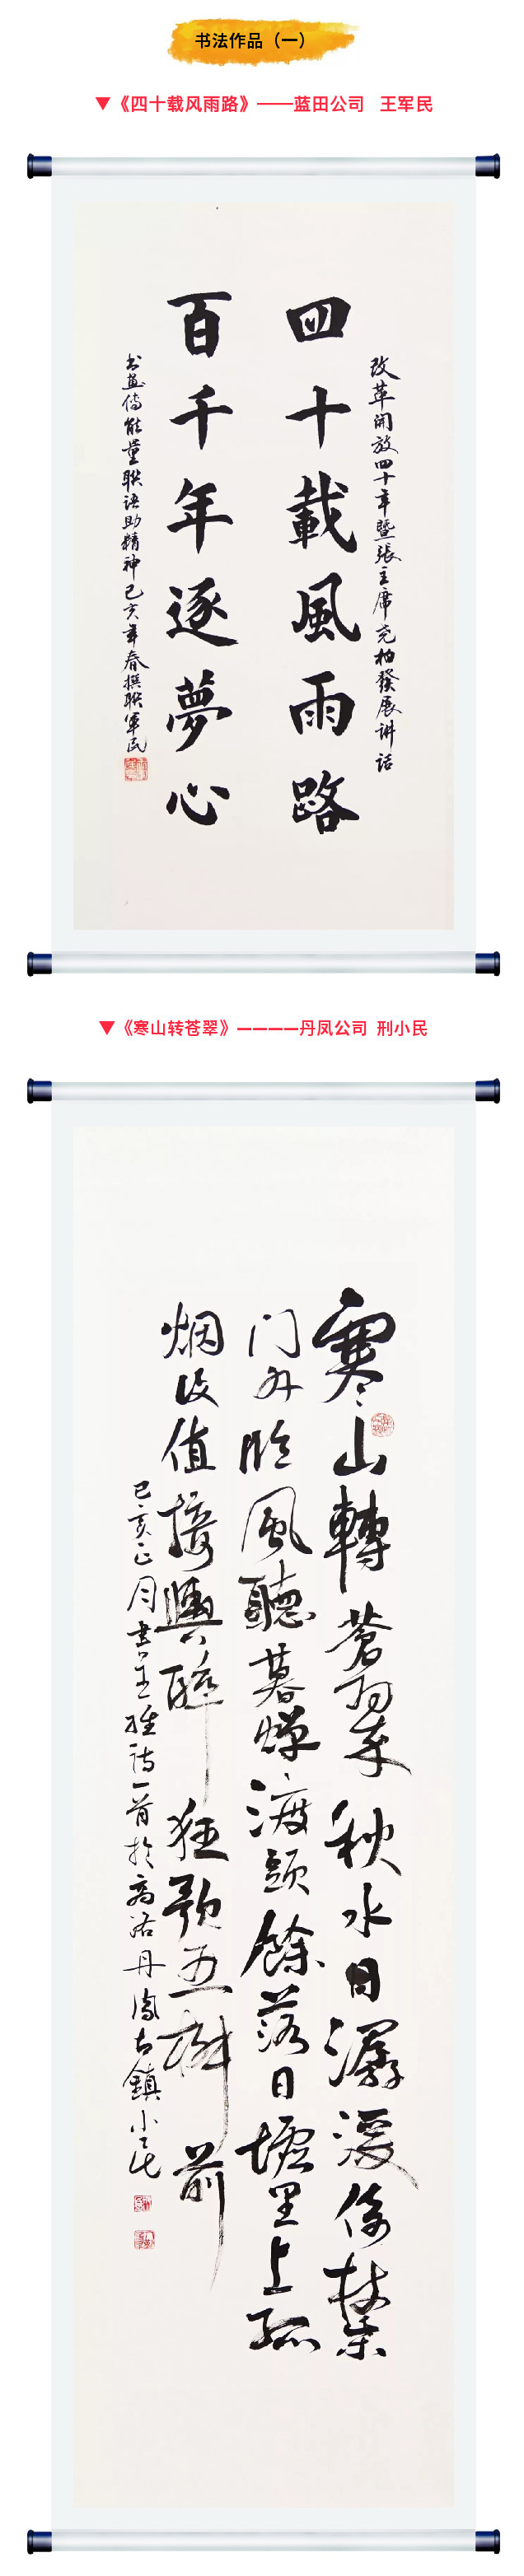 书法作品（一）
▼《四十载风雨路》——蓝田公司 王军民
改革開放四十年暨張主席尧柏發展讲话
四十載風雨路
百千年逐夢心
书画传能量联语助精神己亥年春撰联军民
▼《寒山转苍翠》————丹凤公司 刑小民
寒山轉蒼翠秋水日潺湲倚杖柴
门外临風聽暮蝉渡頭餘落日墟里上孤
烟復值接輿醉狂歌五柳前
己亥正月書王維诗一首於商洛丹鳳古鎮小民